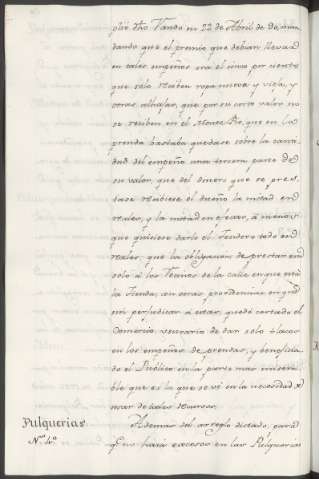 plir dho Vando en 22 de Abril de 90, man
dando que el premio que debian llevar
en tales empeños era el cinco por ciento
que sólo reciben ropa nueva y vieja, y
otras alhajas, que por su corto valor no
se reciben en el Monte Pio, que en la
prenda bastaba quedase sobre la canti
dad del empeño una tercera parte de
su valor, que del dinero que se pres
tase recibiese el dueño la mitad en
reales, y la mitad en efectos, á menos
que quisiese darle el Tendero todo en
reales, que la obligacion de prestar era
solo á los Vecinos de la calle en que está
la Tienda, con otras providencias en que
sin perjudicar á estas, quedó cortado el
Comercio usurario de dar solo tlacos
en los empeños de prendas, y beneficia
do el Publico en la parte mas misera
ble que es la que se vé en la necesidad de
usar de tales recursos.
Pulquerias
N.º 4.º
Ademas del arreglo dictado, para
q.e no haia excesos en las Pulquerias